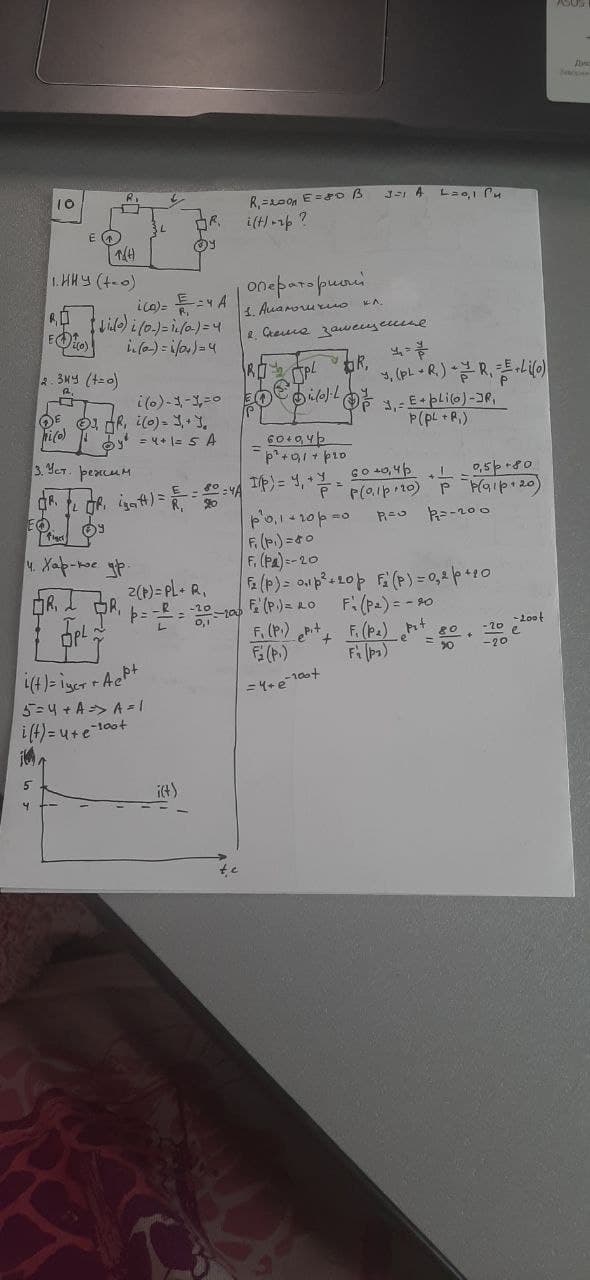 ASUS
10
R₁
R₁
E
L
i(t)
У
R₁=20Ом E=80 В J=1 А L=0,1 Гн
i(t)-?
1. ННУ (t=0)
i(0)= E/R₁ = 4 A
i(0-)=i_L(0-)=4
i_L(0-)=i(0+)=4
R₁
E
i(0)
2. ЗНУ (t=0)
R₁
i(0)-У₁-У=0
i(0)=У₁+У
=4+1=5 A
E
R₁
i(0)
3. Уст. режим
i_уст(t)= E/R₁ = 80/20 =4A
R₁
L
R₁
E
У
4. Хар-кое ур.
Z(p)=pL+R₁
p= -R/L = -20/0,1 =-200
R₁
R₁
pL
i(t)=i_уст+Ae^pt
5=4+A=> A=1
i(t)=4+e^-200t
5
4
i(t)
t,c
Операторный
1. Аналогично кл.
2. Схема замещения
R₁
pL
R₁
E/p
i(0)·L
У/p
У₂= У/p
У₁(pL+R₁)+ У/p R₁= E/p +Li(0)
У₁= E+pLi(0)-JR₁ / p(pL+R₁)
= 60+0,4p / p²·0,1+p20
I(p)=У₁+ У/p = 60+0,4p / p(0,1p+20) + 1/p = 0,5p+80 / p(0,1p+20)
p²0,1+20p=0 p₁=0 p₂=-200
F₁(p₁)=80
F₁(p₂)=-20
F₂(p)=0,1p²+20p F₂'(p)=0,2p+20
F₂'(p₁)=20 F₂'(p₂)=-20
F₁(p₁)/F₂'(p₁) e^p₁t + F₁(p₂)/F₂'(p₂) e^p₂t = 80/20 + -20/-20 e^-200t
=4+e^-200t